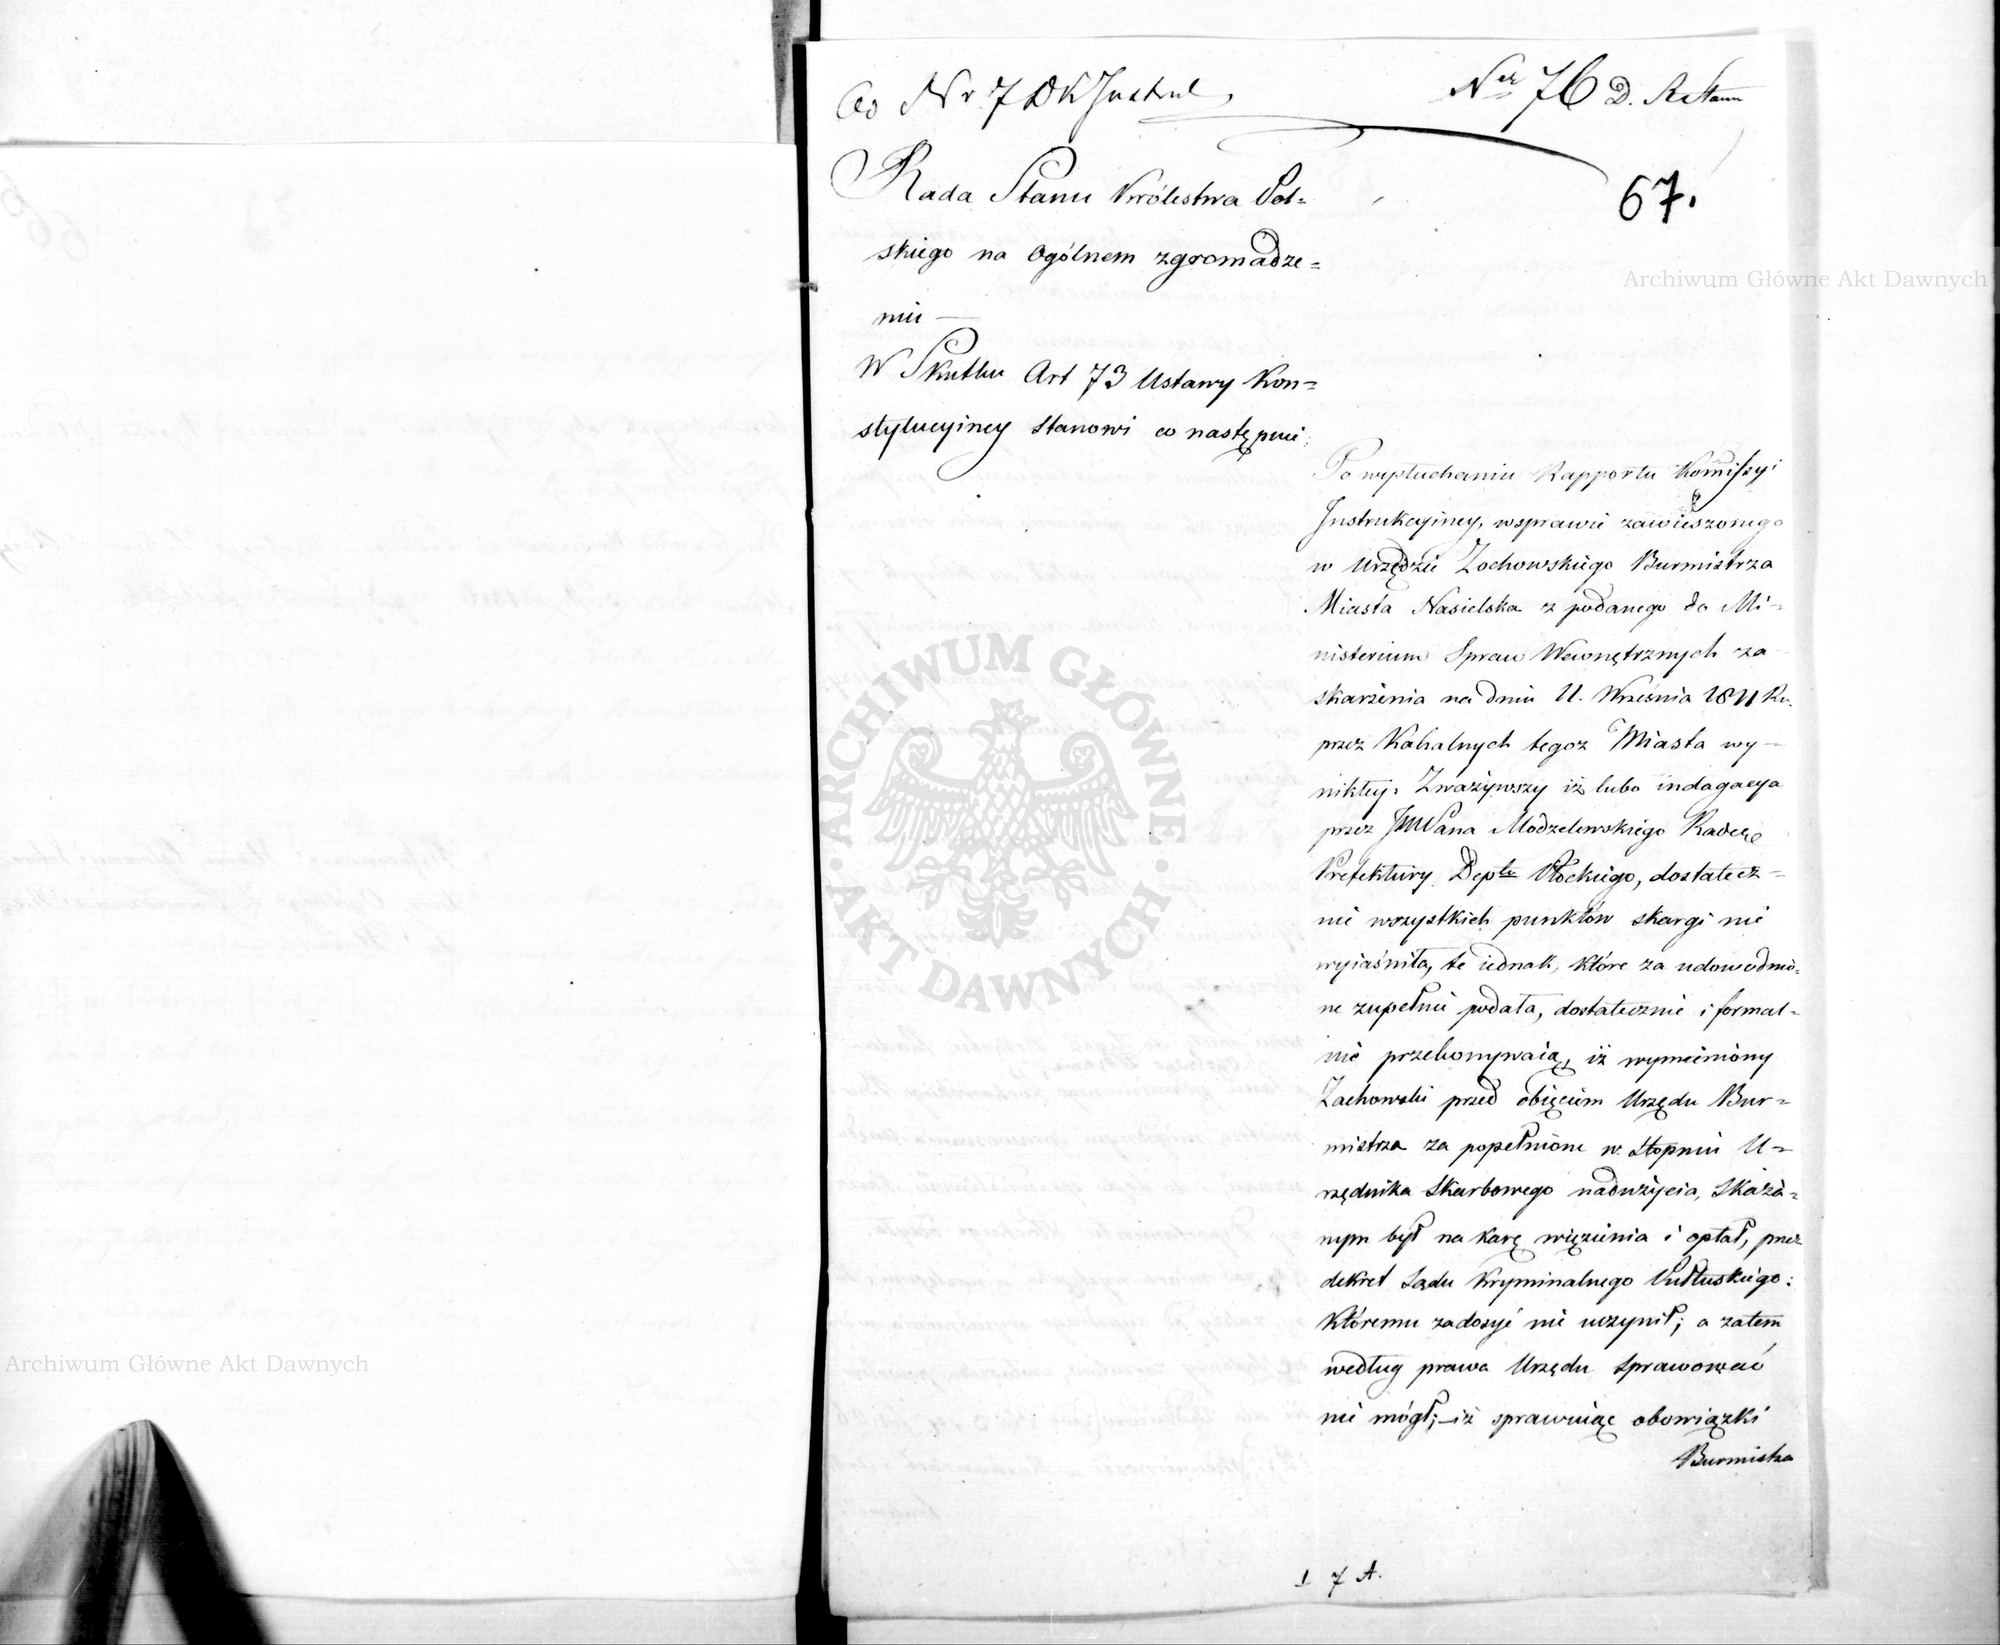 ad Nr 7 DK Instruk
Ner 76 D. R Stanu
67.
Rada Stanu Królestwa Pol=
skiego na Ogólnem zgromadze=
niu —
W Skutku Art 73 Ustawy Kon=
stytucyiney Stanowi co następuie:
Po wysłuchaniu Rapportu Kommissyi
Instrukcyiney, wsprawie zawieszonego
w Urzędzie Zochowskiego Burmistrza
Miasta Nasielska z podanego do Mi-
nisterium Spraw Wewnętrznych za
skarżenia na dniu 11. Września 1811 Ru.
przez Kahalnych tegoz Miasta wy-
nikłey. Zważywszy iż lubo indagacya
przez JWPana Modzelewskiego Radcę
Prefektury Deptu Płockiego, dostatecz-
nie wszystkich punktów skargi nie
wyiaśniła, te iednak, które za udowodnio-
ne zupełnie podała, dostatecznie i formal-
nie przekonywaią, iż wymieniony
Zochowski przed obięciem Urzędu Bur-
mistrza za popełnione w Stopniu U-
rzędnika Skarbowego nadużycia, Skaza-
nym był na karę więzienia i opłat, przez
dekret Sądu Kryminalnego Pułtuskiego:
któremu zadosyć nie uczynił; a zatem
według prawa Urzędu Sprawować
nie mógł;—iż sprawuiąc obowiązki
Burmistza
1 7 A.
Archiwum Główne Akt Dawnych
Archiwum Główne Akt Dawnych
ARCHIWUM GŁÓWNE
AKT DAWNYCH